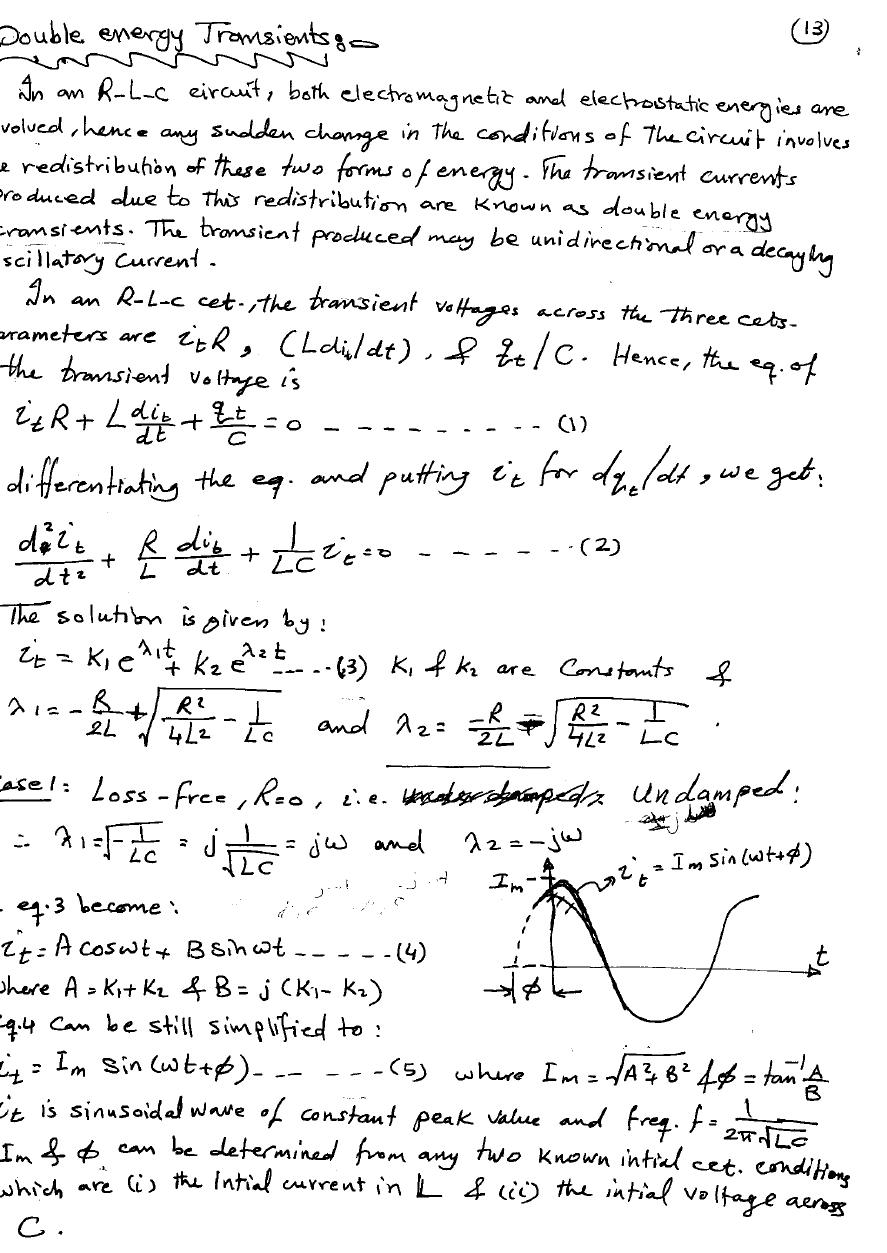 Double energy Transients:-
(13)
In an R-L-C circuit, both electromagnetic and electrostatic energies are
volved, hence any sudden change in the conditions of the circuit involves
e redistribution of these two forms of energy. The transient currents
produced due to this redistribution are known as double energy
transients. The transient produced may be unidirectional or a decaying
scillatory current.
In an R-L-C cct., the transient voltages across the three ccts.
arameters are i_t R, (L di_t/dt), & q_t/C. Hence, the eq. of
the transient voltage is
i_t R + L di_t/dt + q_t/C = 0 ---------- (1)
differentiating the eq. and putting i_t for dq_t/dt, we get:
d²i_t/dt² + R/L di_t/dt + 1/LC i_t = 0 ------- (2)
The solution is given by:
i_t = K₁e^λ₁t + K₂e^λ₂t ----- (3) K₁ & K₂ are Constants &
λ₁ = -R/2L + √(R²/4L² - 1/LC) and λ₂ = -R/2L - √(R²/4L² - 1/LC) .
ase1: Loss-free, R=0, i.e. Undamped:
∴ λ₁ = √(-1/LC) = j 1/√LC = jω and λ₂ = -jω
I_m
i_t = I_m sin(ωt+φ)
t
φ
eq.3 become:
i_t = A cosωt + B sinωt ----- (4)
where A = K₁+K₂ & B = j(K₁-K₂)
Eq.4 Can be still simplified to:
i_t = I_m sin(ωt+φ) ------ (5) where I_m = √(A²+B²) & φ = tan⁻¹ A/B
i_t is sinusoidal wave of constant peak value and freq. f = 1/2π√LC
I_m & φ can be determined from any two known intial cct. conditions
which are (i) the Intial current in L & (ii) the intial voltage across
C.